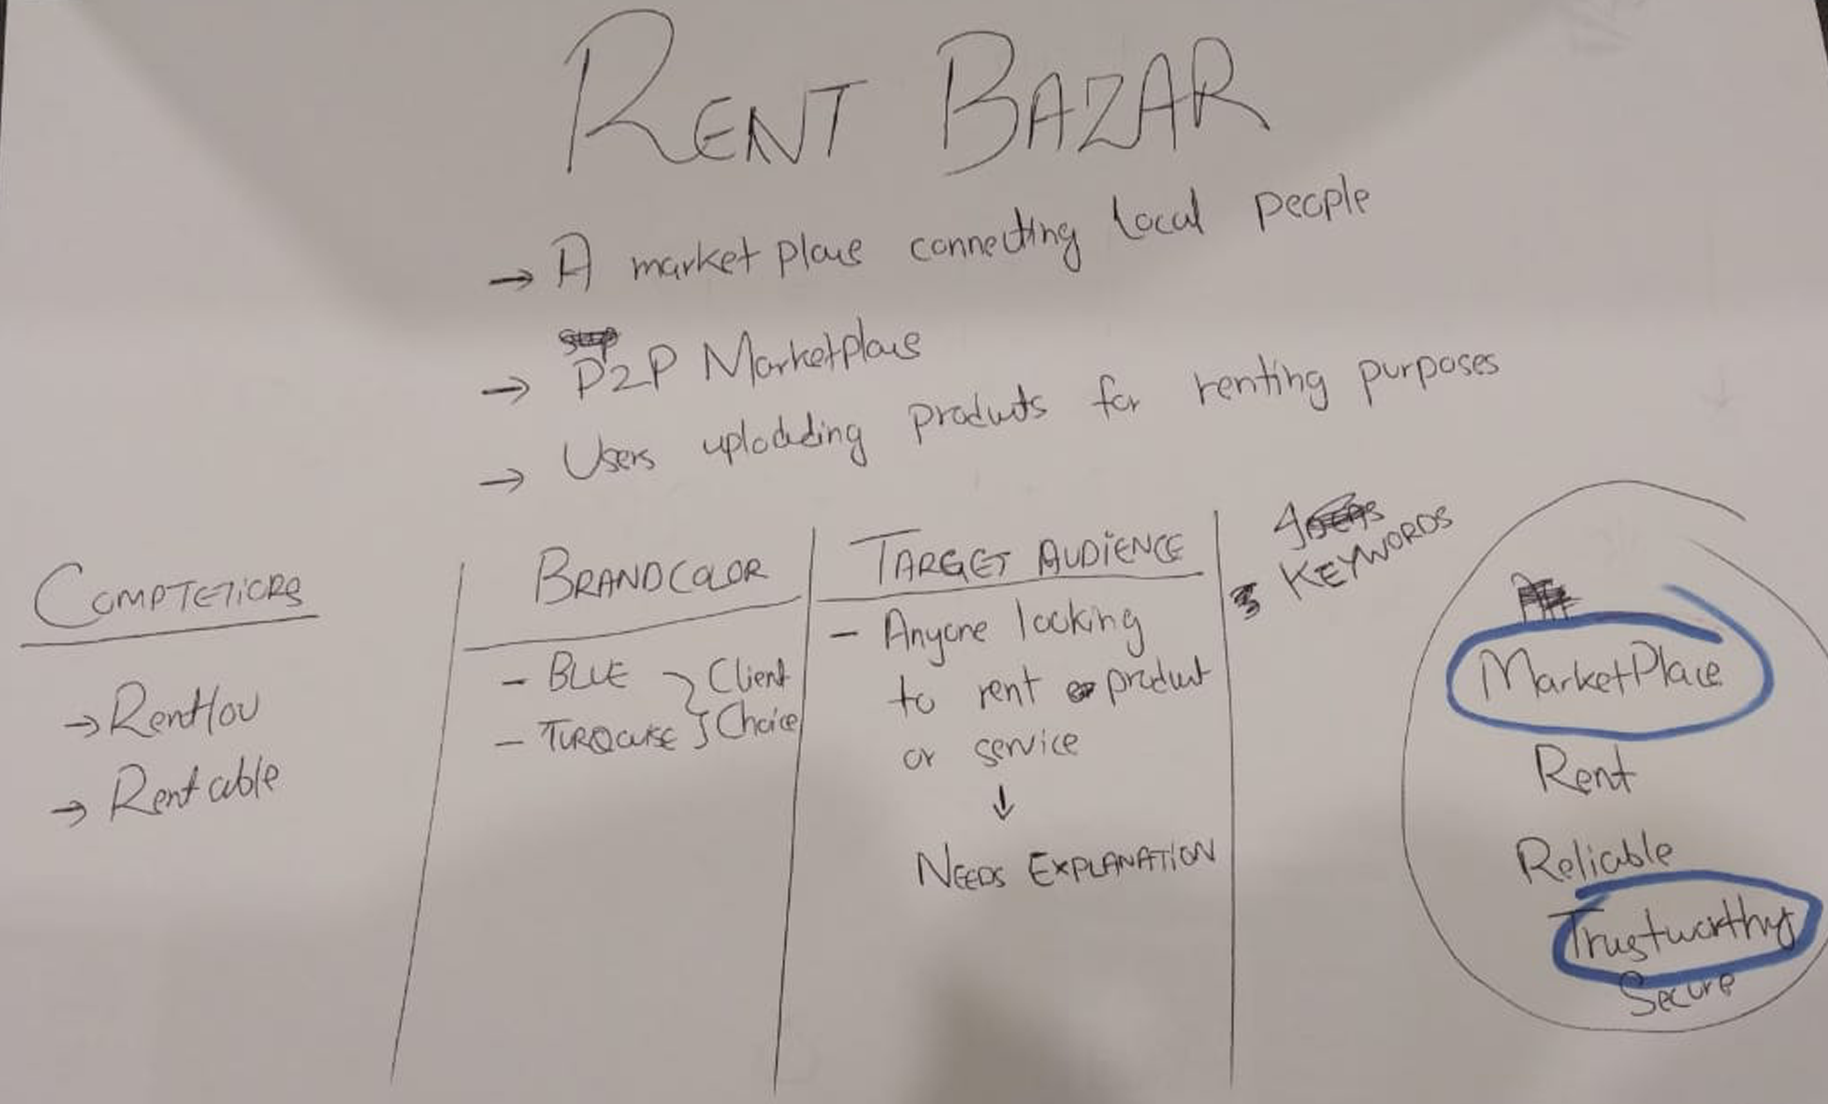 RENT BAZAR
→ A marketplace connecting local people
→ P2P Marketplace
→ Users uploading products for renting purposes
COMPTETIORS
→ Renthov
→ Rentable
BRANDCOLOR
- BLUE } Client
- TURQOUISE } Choice
TARGET AUDIENCE
- Anyone looking
to rent product
or service
↓
NEEDS EXPLANATION
KEYWORDS
MarketPlace
Rent
Reliable
Trustworthy
Secure